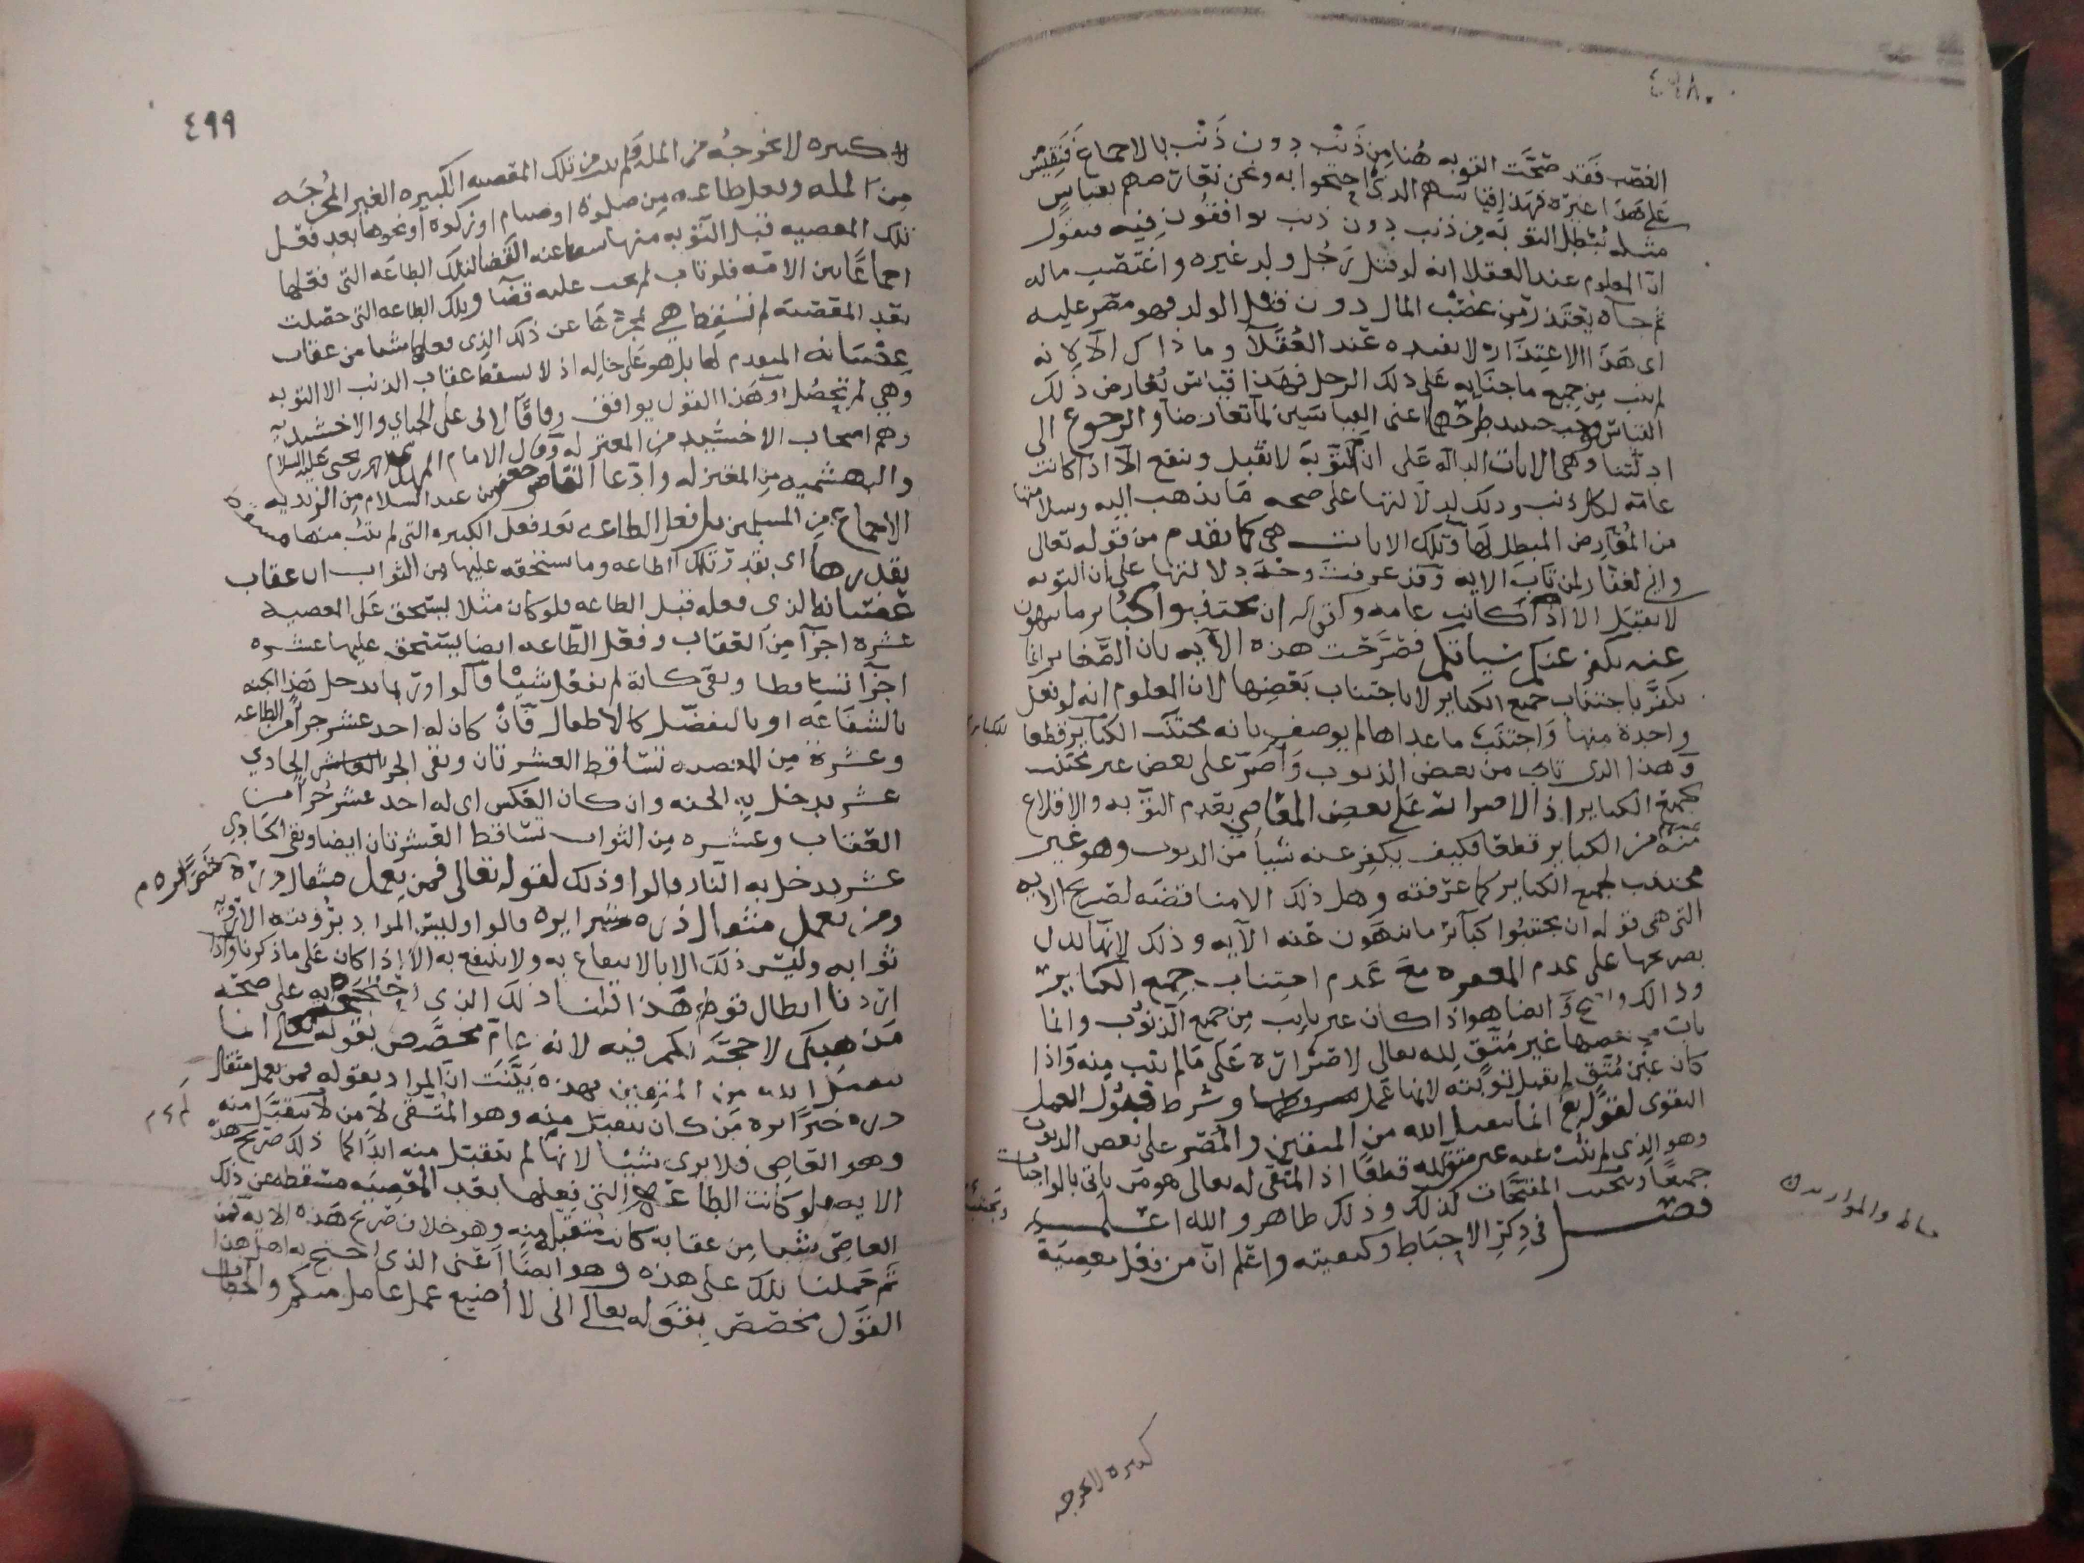 ٤٩٨
الغصب فقد صحَّت التوبه هُنا مِن ذَنْب دون ذَنْب بالاجماع فَنَقِيْسُ
على هَذا غيرَه فهَذا قياسهم الذي احتجوا به ونحن نعَارضهم بقياسٍ
مثله يُبْطِل التوبَه مِن ذنب دون ذنب يوافقُون فيه فنقول
انّ المعلوم عند العقلا انه لو قتل رَجُل ولد غيره واغتصَب ماله
ثم جاء يعْتَذر مِن غصْب المال دون قتل الولد وهو مصَر عليه
اى هَذا الاعتِذَار لا يفيده عند العُقَلا وما ذاك الا لانه
لم يتب مِن جميع ما جنَا به عَلى ذلك الرجل فهَذا قيَاس يُعَارض ذلك
القياس وجب حينئذ طرحُهما اعنى القياسَين لمّا تعارضا والرجوع الى
ادلّتنا وهى الايات الدالّه عَلى ان التَّوبَة لا تقبل وتنفع الّا اذا كانت
عامَّة لكل ذنب وذلك لدلالتها على صحه مَا نذهب اليه وسلامتها
من المُعَارض المبطل لهَا وتلك الايات هى كما تقدم من قوله تعالى
وانى لغفّار لمن تَابَ الايه وقد عرفت وجْهَ دلالتها على ان التوبه
لا تقبَل الا اذا كانت عامه وكقوله ان تجتنبوا كبَائر ما تنهون
عنه نكفر عنكم سيّاتكم فصَرَّحَت هذه الآيه بان الصَّغاير انما
تكفَّر باجتناب جميع الكباير لا باجتناب بَعْضِها لان المعلوم انه لو فعل
واحدة منها وَاجتنَبَ ما عداها لم يوصف بانه مجتنَب الكَبَاير قطعا
للكباير
وَهذا الذى تاب من بعض الذنوب وَأصَرَّ على بعض غير مجتنب
لجميع الكباير اذ الاصرار عَلى بعضِ المعَاصي بعَدم التوبه والاقلاع
منه مِن الكباير قطعًا فكيف يكفر عنه شيئًا من الذنوب وهو غير
مجتنب لجميع الكباير كما عرَفته وهل ذلك الا مناقضَه لصَريح الايه
التى هى قوله ان تجتنبُوا كبَآئرَ ما تنهَون عنه الآيه وذلك لانّها تدل
بصريحها على عدم المغفره مَعَ عَدم اجتناب جميع الكبَاير
وذالك واضح وَايضا هو اذا كان غير تايب مِن جميع الذّنُوب وانما
تاب مِن بعضها غير مُتَّقٍ لله تعالى لاصْرَارِه عَلى مَا لم يتب مِنه وَاذا
كان غَيْر مُتَّق لم تقبل توبَته لانها عَمَل وشرط قبُول العمل
التقوى لقَوله تع انما يتقبل الله من المتقين والمُصَّر على بعض الذنوب
وهو الذى لم يتُب عنه غير متقٍ لله قطعًا اذ المتَّقى لله تعالى هو مَن ياتى بالواجبات
جميعًا ويجتنب المقبَّحَات كذلك وذلك ظاهر والله اعلم
ويجتنب
فصْل في ذِكر الاحبَاط وكيفيته واعْلم انّ من فعَل معصِيَة
ساط والموازين
كبيره لا تخرجه
٤٩٩
كبيره لا تخرجُه مِن المله فلم يتب مِن تلك المعَصيه الكبيره الغير المُخْرجَه
مِن المله وفعل طاعه مِن صلوة او صيام او زكوة او نحوها بعد فعْل
تلك المعصيه قبل التوبه منها سقط عنه القضا لتلك الطاعَه التى فعَلها
اجماعًا بين الامّه فلو تاب لم يجب عليه قضآ وتلك الطاعه التى حصَلت
بعْدِ المعْصَية لم تُسْقِط هي بمجرّدها عن ذلك الذِى فعلها شيئا من عقاب
عِصْيَانه المتقدم لها بل هو عَلى حاله اذ لا يسقط عقاب الذنب الا التوبه
وهي لم تحْصُل وهَذا القول يوافق وفاقًا لابى على الجبائى والاخشيديه
وهم اصحاب الاخشَيد مِن المعتزله وَقال الامام المهدى احمد بن يحى عليه السلام
والبهشميه مِن المعتزله وادّعا القاضى جعفر بن عبد السلام مِن الزيديه
الاجماع مِن المسلمين بل فعل الطاعه بَعد فعل الكبيره التى لم يتُب منها مسقطة
بقدرهَا اى بقَدر تلك الطاعه وما يستحقه عليها مِن الثواب ان عقاب
عصْيَانه الذى فعله قبل الطاعه فلو كان مثلا يستحق عَلى المعصية
عشره اجزآ مِنَ العقاب وفعَل الطّاعه ايضا يستحق عليها عشره
اجزآ تساقطا وبقى كانه لم يفعل شيئا قالوا وربما يدخل هَذا الجنه
بالشفَاعَه او بالتفضّل كالاطفال فَان كان له احد عشر جزآ مِن الطاعه
وعشرة مِن المعصيه تسَاقط العشرتان وبقى الجزء العاشر الحادي
عشر يدخل به الجنه وان كان العَكس اى له احد عشر جُزآ مِن
العقاب وعشره مِن الثواب تساقط العشرتان ايضا وبقى الحَادي
عشر يدخل به النار قالوا وذلك لقوله تعَالى فمن يعمل مثقال ذره خَيْرًا يره م
ومن يعمل مثقال ذره شرا يره قالوا وليسَ المراد برُؤيته الا رؤيه
ثوابه وليْسَ ذلكَ الا بالانتفاع به ولا ينتفع به الا اذا كان عَلى ما ذكرنا وَاذا
اردنا ابطال قولهم هَذا قلنا ذلكَ الذى احْتجَجْتم به على صحّة
مَذهبكم لا حجّة لكم فيه لانه عَامّ مخصَّص بقوله تعالى انما
يتقبل الله من المتقين فهذه بَيَّنَت انّ المراد بقوله فمن يعمل مثقال
ذره خيرًا يره مَن كان يتقبل مِنه وهو المتّقى لا من لا يتقبَّل منه
وهو العَاصِى فلا يرى شيئا لانها لم تتقبل منه ابدًا كما ذلك صَريح هَذه
الايه فلو كانت الطاعَه التى فعَلها بعْد المعْصِيَه مسْقطه عن ذلك
العاصِى شيئا مِن عقابه كانت متقبَّله مِنه وهو خلاف صَريح هَذه الايه فمِن
ثَم حَملنا تلك على هذه وهو ايضًا اعْنى الذى احتج به اهل هذا
القوْل مخصّص بقوله تعالى انى لا أضيع عمل عامل منكم والخطاب